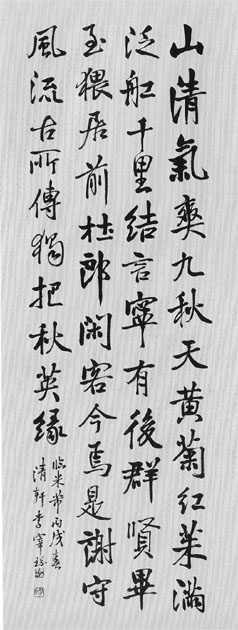 山清氣爽九秋天黃菊紅茱滿
泛舡千里結言寧有後群賢畢
至猥居前杜郎閑客今焉是謝守
風流古所傳獨把秋英緣
臨米芾丙戌春
清軒李